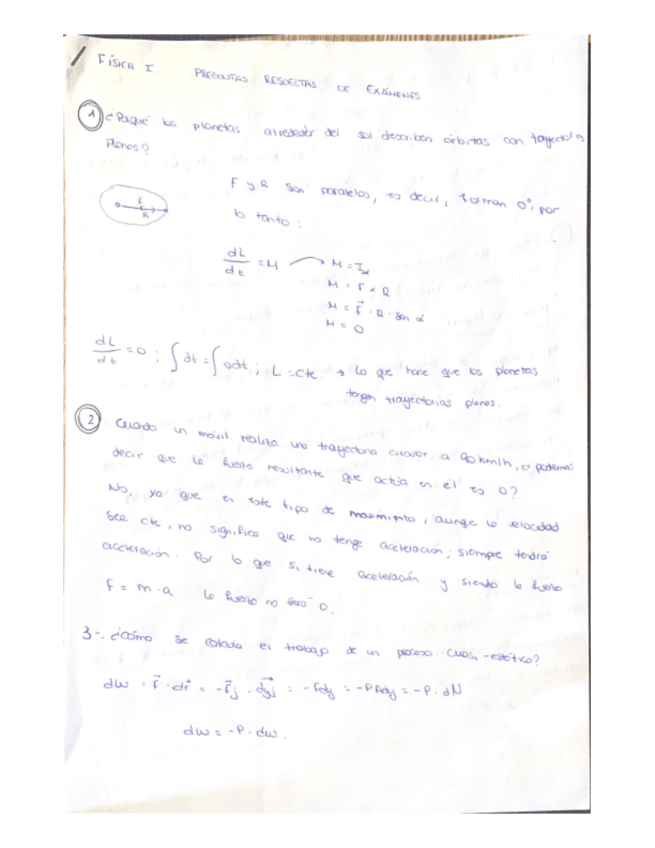 FÍSICA I. PREGUNTAS RESUELTAS DE EXÁMENES
1 ¿Porqué los planetas alrededor del sol describen órbitas con trayectorias
planas?
F
R
F y R son paralelos, es decir, forman 0°, por
lo tanto:
dL/dt = M → M = Iα
M = F x R
M = F⃗ · R · sen α
M = 0
dL/dt = 0 ; ∫dt = ∫0dt ; L = cte. → Lo que hace que los planetas
tengan trayectorias planas.
2 Cuando un móvil realiza una trayectoria circular a 90 km/h, ¿podemos
decir que la fuerza resultante que actúa en él es 0?
No, ya que en este tipo de movimiento, aunque la velocidad
sea cte, no significa que no tenga aceleración; siempre tendrá
aceleración. Por lo que si tiene aceleración y siendo la fuerza
F = m·a la fuerza no será 0.
3-. ¿Cómo se calcula el trabajo de un proceso cuasi-estático?
dW = F⃗ · dr⃗ = -F⃗j · dy⃗j = -Fdy = -PAdy = -P·dV
dW = -P·dW.